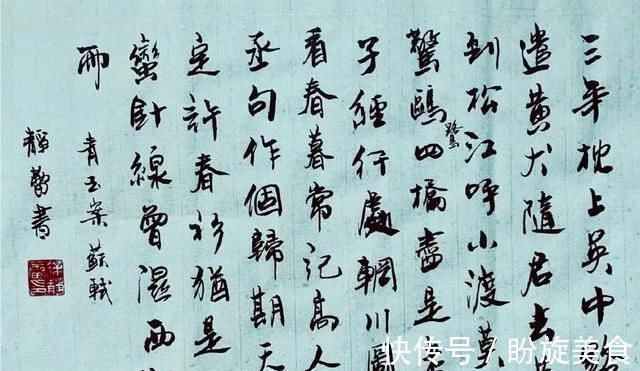 三年枕上吳中路
遣黄犬隨君去
到松江呼小渡莫
驚鷗鷺四橋盡是
子經行處輞川圖
看春暮常記高人
丞句作個歸期天
定許春衫猶是
蠻針線曾濕西
雨
青玉案 蘇軾
書
快传号 / 盼旋美食